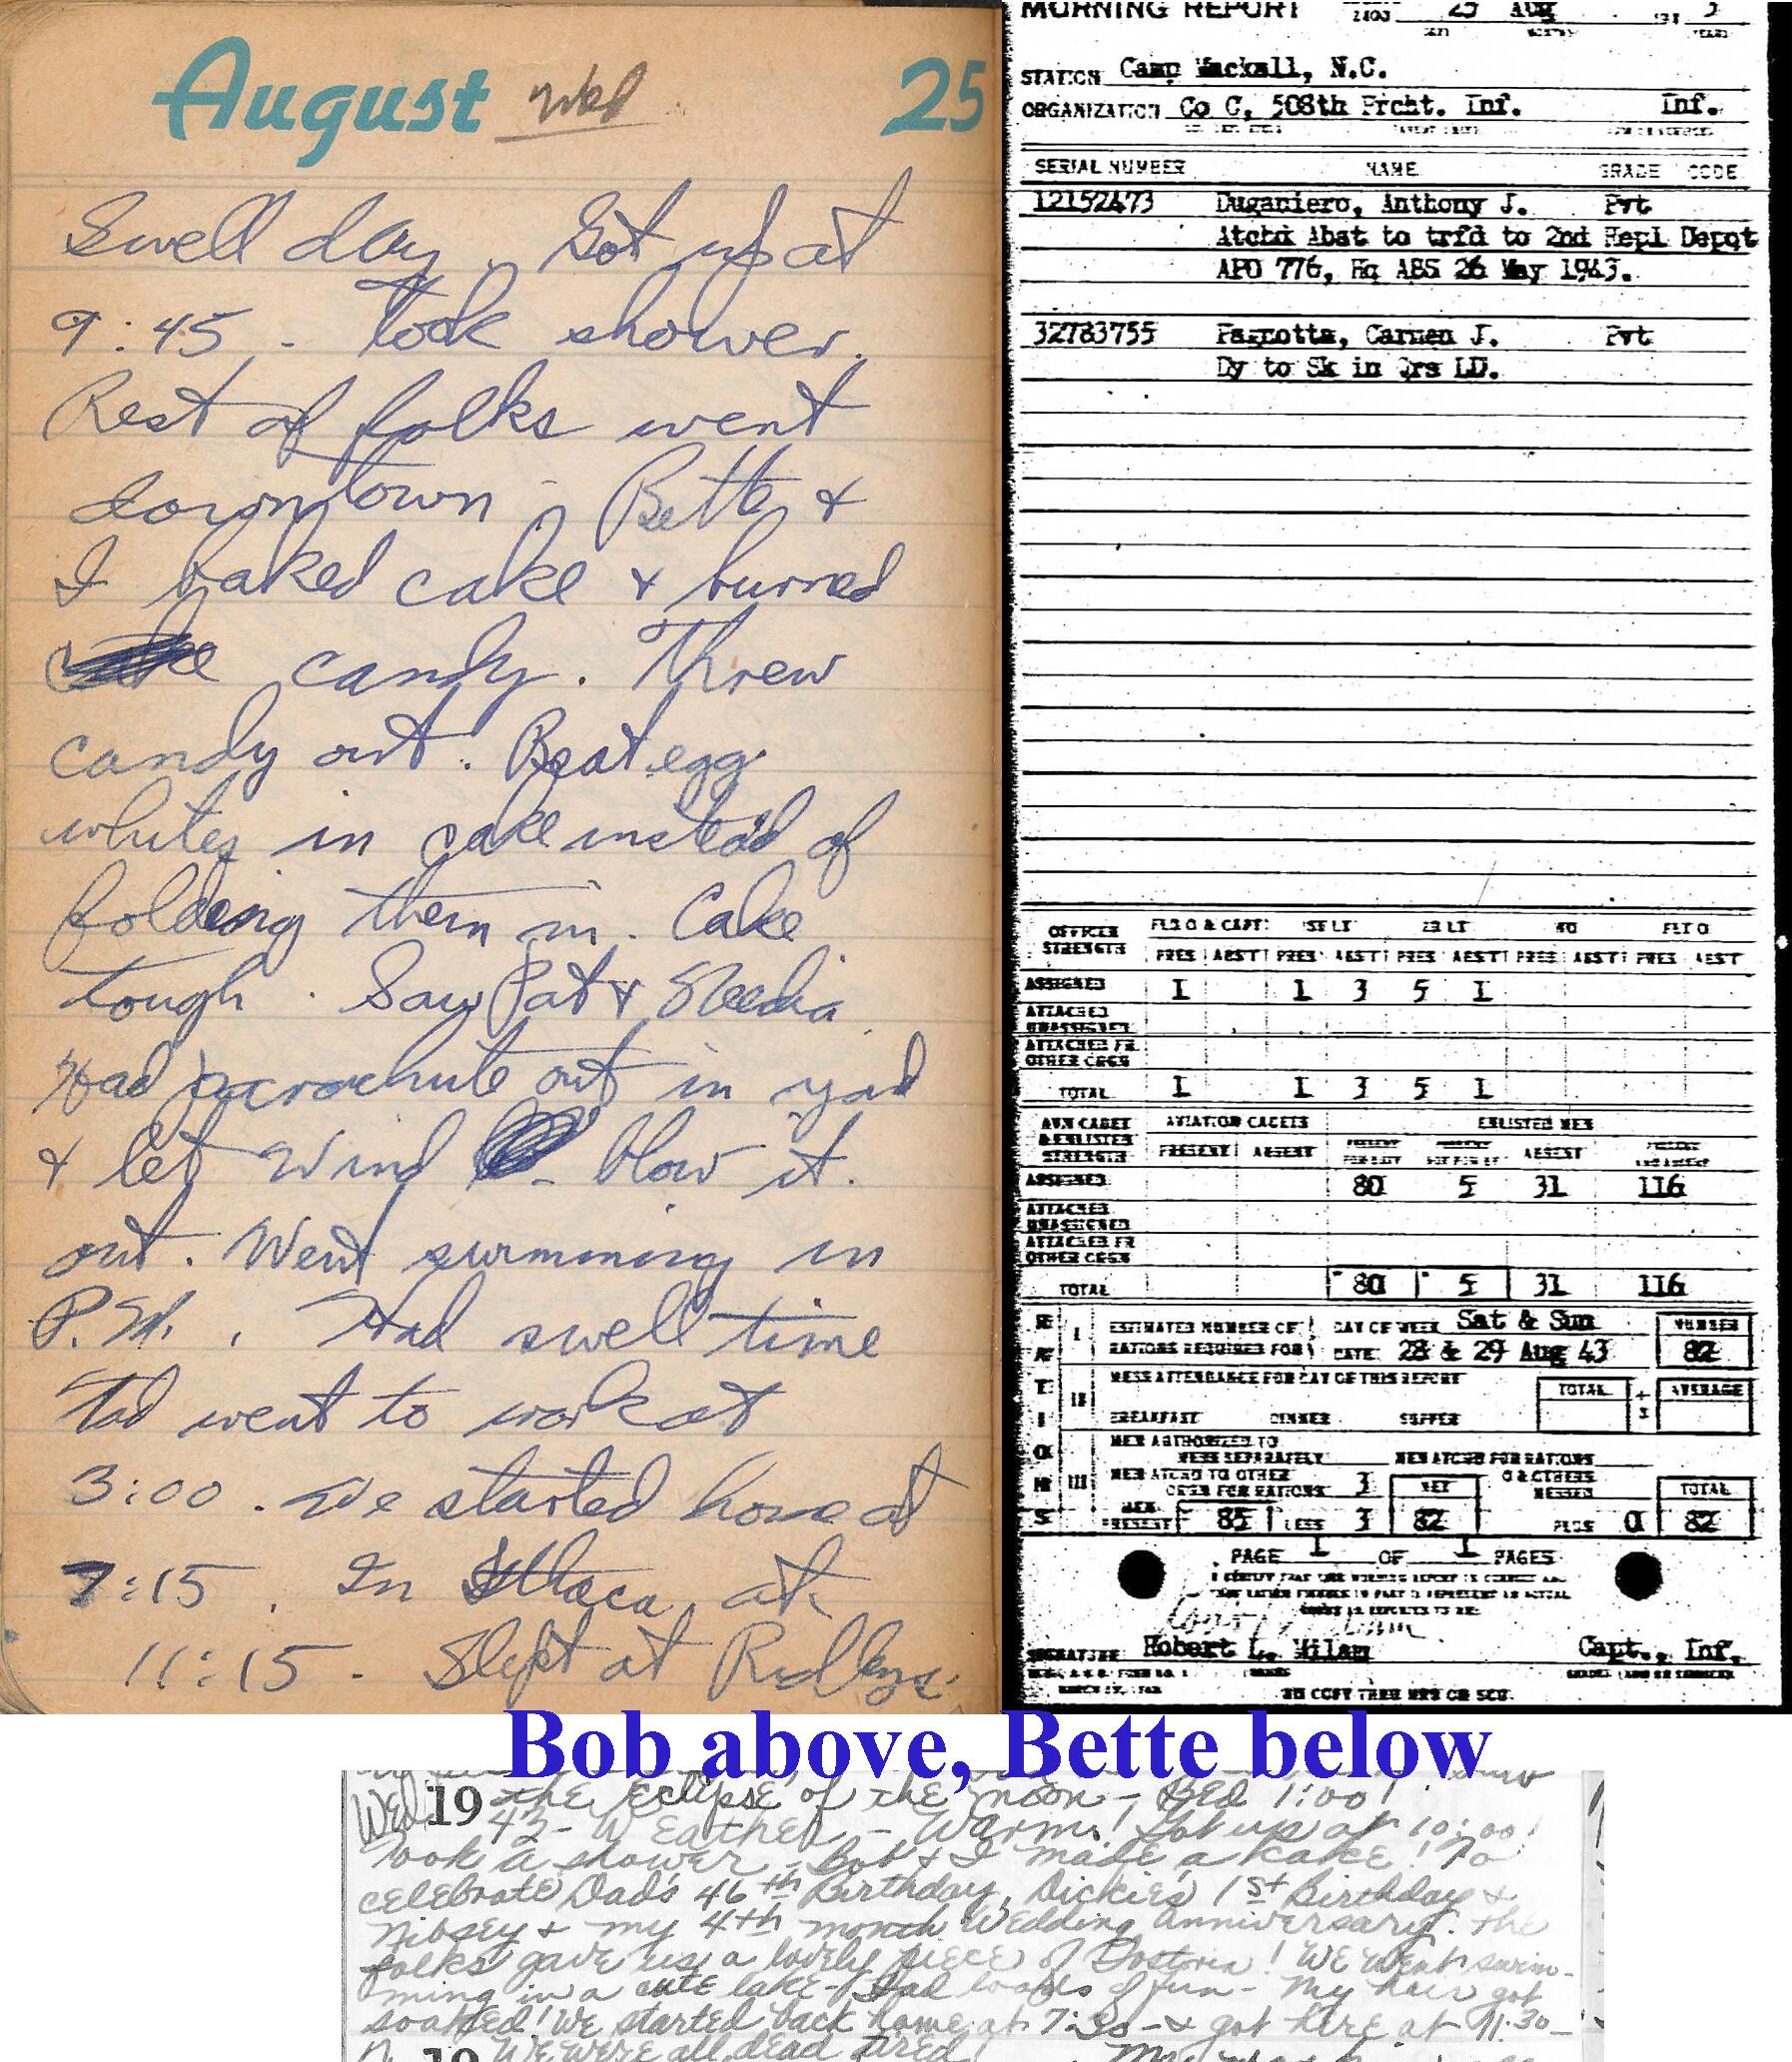 August Wed 25
Swell day. Got up at
9:45 - Took shower.
Rest of folks went
downtown - Bette &
I baked cake & burned
candy. Threw
candy out. Beat egg
whites in cake instead of
folding them in. Cake
tough. Saw Pat &
Had parachute out in yad
& let wind blow it.
out. Went swimming in
P.M. Had swell time
Tad went to work at
3:00. We started home at
7:15. In Ithaca at
11:15 - Slept at Ridleys.
MORNING REPORT 2400 25 Aug 3
STATION Camp Mackall, N.C.
ORGANIZATION Co C, 508th Prcht. Inf. Inf.
SERIAL NUMBER NAME GRADE CODE
12152473 Duganiero, Anthony J. Pvt
Atchd Abst to trfd to 2nd Repl Depot
APO 776, Hq ABS 26 May 1943.
32783755 Pagnotta, Carmen J. Pvt
Dy to Sk in Qrs LD.
OFFICER STRENGTH FLD O & CAPT 1ST LT 2D LT WO FLT O
PRES ABST PRES ABST PRES ABST PRES ABST PRES ABST
ASSIGNED 1 1 3 5 1
ATTACHED UNASSIGNED
ATTACHED FR OTHER ORGN
TOTAL 1 1 3 5 1
AVN CADET & ENLISTED STRENGTH AVIATION CADETS ENLISTED MEN
PRESENT ABSENT PRESENT FOR DUTY PRESENT NOT FOR DY ABSENT PRESENT AND ABSENT
ASSIGNED 80 5 31 116
ATTACHED UNASSIGNED
ATTACHED FR OTHER ORGN
TOTAL 80 5 31 116
RATIONS
I ESTIMATED NUMBER OF RATIONS REQUIRED FOR DAY OF WEEK Sat & Sun NUMBER
DATE 28 & 29 Aug 43 82
II MESS ATTENDANCE FOR DAY OF THIS REPORT TOTAL ÷ 3 AVERAGE
BREAKFAST DINNER SUPPER
III MEN AUTHORIZED TO MESS SEPARATELY MEN ATCHD FOR RATIONS
MEN ATCHD TO OTHER ORGN FOR RATIONS 3 NET O & OTHERS MESSED TOTAL
MEN PRESENT 85 LESS 3 82 PLUS 0 82
PAGE 1 OF 1 PAGES
SIGNATURE Robert L. Milam Capt., Inf.
Bob above, Bette below
the Eclipse of the moon - Bed 1:00!
Wed 19 43 - Weather - Warm! Got up at 10:00!
Took a shower - Bob & I made a kake! To
celebrate Dad's 46th Birthday, Dickie's 1st Birthday &
Nibsey & my 4th month Wedding anniversary. The
folks gave us a lovely piece of Fostoria! We went swim-
ming in a cute lake - Had loads of fun - My hair got
soaked! We started back home at 7:30 - & got here at 11:30 -
19 We were all dead tired!